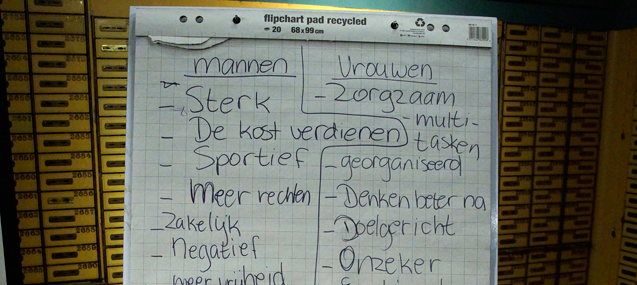 flipchart pad recycled
20 68x99cm
mannen
- Sterk
- De kost verdienen
- Sportief
- Meer rechten
- Zakelijk
- negatief
meer vrijheid
Vrouwen
- Zorgzaam
- multi-
tasken
- georganiseerd
- Denken beter na
- Doelgericht
- Onzeker
2656
2657